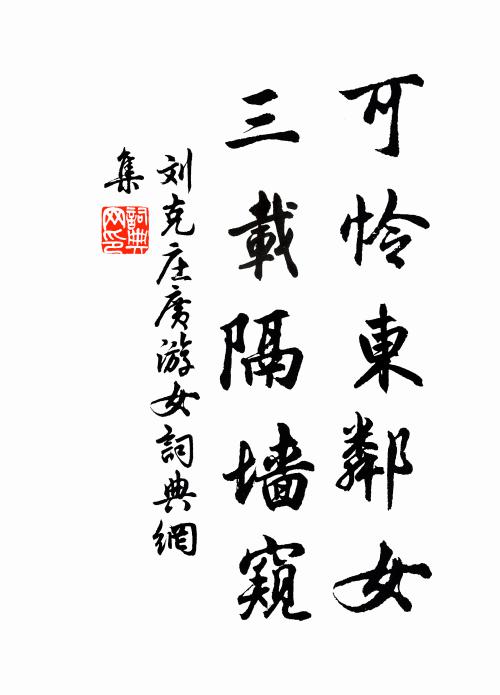 可怜東鄰女
三載隔墙窺
刘克庄廣游女詞典網
集
詞典网印